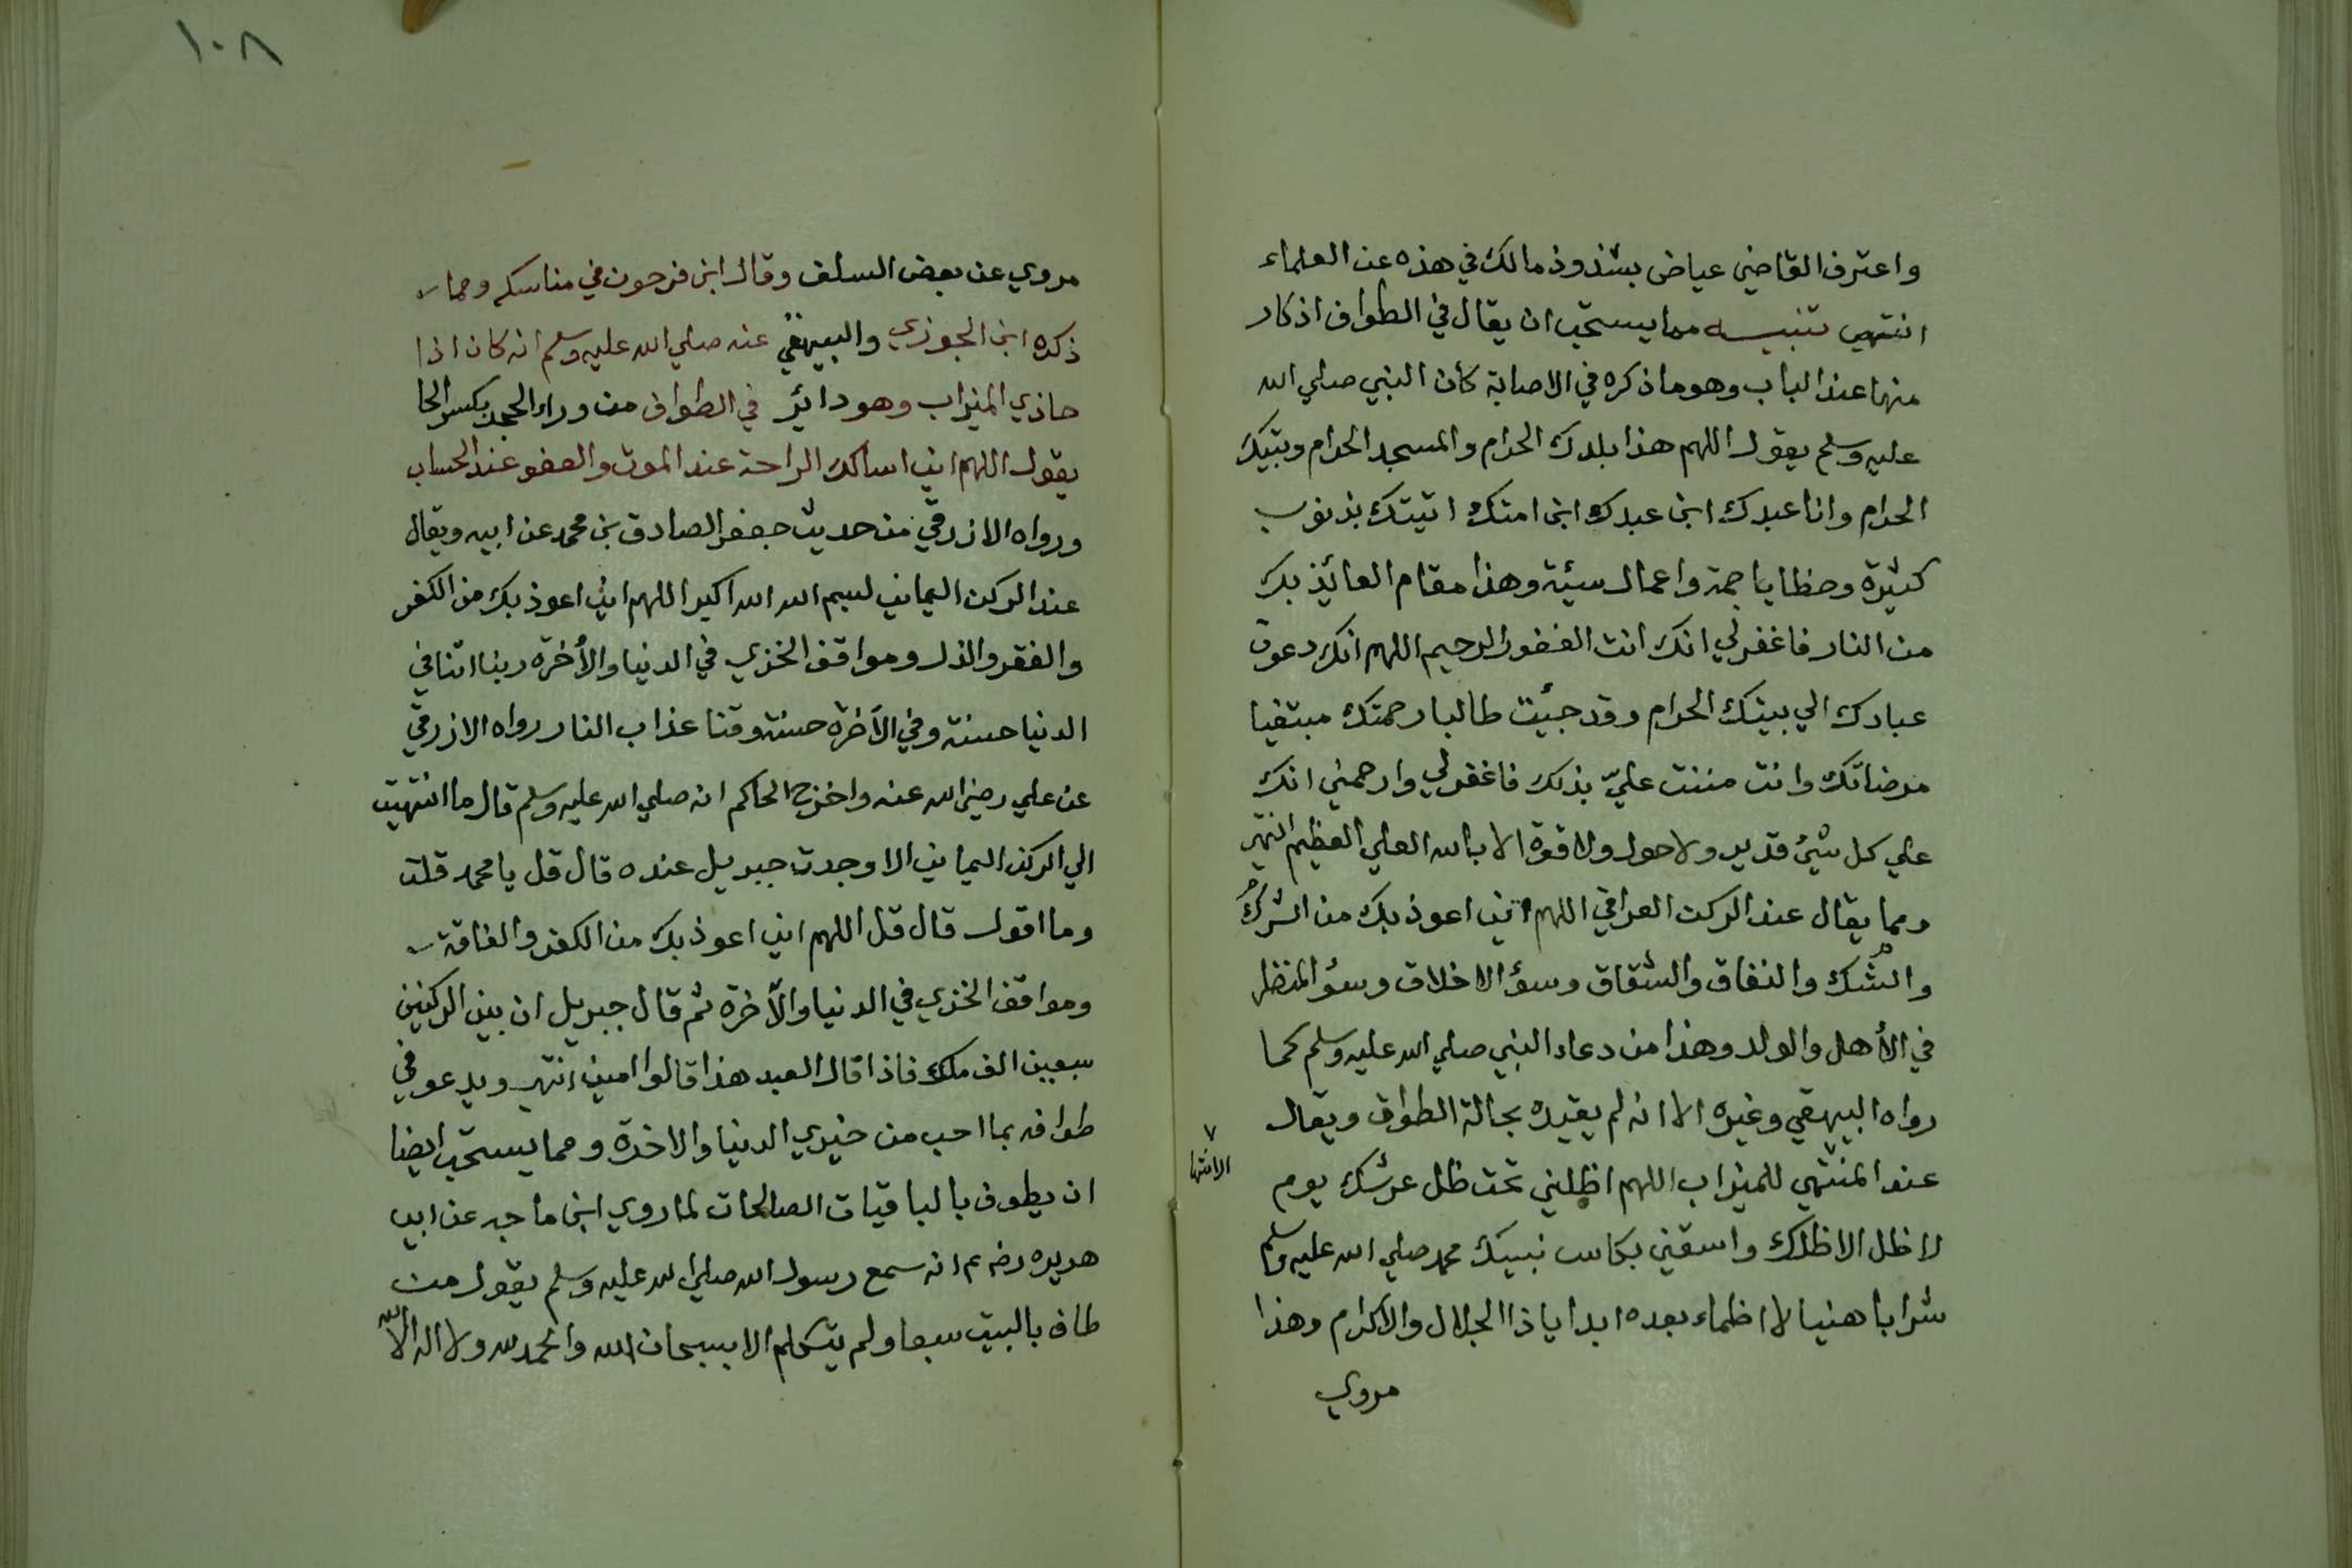 واعترف القاضي عياض بشذوذ مالك في هذه عن العلماء
انتهى تنبيه مما يستحب ان يقال في الطواف اذكار
منها عند الباب وهو ما ذكره في الاصابة كان النبي صلي الله
عليه وسلم يقول اللهم هذا بلدك الحرام والمسجد الحرام وبتيك
الحرام وانا عبدك ابن عبدك ابن امتك اتيتك بذنوب
كثيرة وخطايا جمة واعمال سيئة وهذا مقام العائيذ بك
من النار فاغفرلي انك انت الغفور الرحيم اللهم انك دعوت
عبادك الي بيتك الحرام وقد جيئت طالبا رحمتك مبتغيا
مرضاتك وانت مننت عليّ بذلك فاغفرلي وارحمني انك
علي كل شيئ قدير ولا حول ولا قوة الا بالله العلي العظيم انتهى
ومما يقال عند الركن العراقي اللهم اني اعوذ بك من الشرك
والشك والنفاق والشقاق وسؤ الاخلاق وسؤ المنظر
في الأهل والولد وهذا من دعاء النبي صلي الله عليه وسلم كما
رواه البيهقي وغيره الا انه لم يقيده بحالة الطواف ويقال
عند المنتهي للميزاب اللهم اظلني تحت ظل عرشك يوم
٧ الانتها
لا ظل الا ظلك واسقني بكاس نبيك محمد صلي الله عليه وسلم
شرابا هنيا لا اظماء بعده ابدا ياذا الجلال والاكرام وهذا
مروي
١٠٨
مروي عن بعض السلف وقال ابن فرحون في مناسكه ومما
ذكره ابن الجوزي والبيهقي عنه صلي الله عليه وسلم انه كان اذا
حاذي الميزاب وهو دائر في الطواف من وراء الحجر بكسر الحا
يقول اللهم اني اسالك الراحة عند الموت والعفو عند الحساب
ورواه الازرقي من حديث جعفر الصادق بن محمد عن ابيه ويقال
عند الركن اليماني بسم الله الله اكبر اللهم اني اعوذ بك من الكفر
والفقر والذل ومواقف الخزي في الدنيا والأخرة ربنا اتنا في
الدنيا حسنة وفي الآخرة حسنة وقنا عذاب النار رواه الازرقي
عن علي رضي الله عنه واخرج الحاكم انه صلي الله عليه وسلم قال ما انتهيت
الي الركن اليماني الا وجدت جبريل عنده قال قل يا محمد قلت
وما اقول قال قل اللهم اني اعوذ بك من الكفر والفاقة
ومواقف الخزي في الدنيا والآخرة ثم قال جبريل ان بين الركنين
سبعين الف ملك فاذا قال العبد هذا قالوا امين انتهى ويدعو في
طوافه بما احب من خيري الدنيا والاخرة ومما يستحب ايضا
ان يطوف بالباقيات الصالحات لما روي ابن ماجه عن ابي
هريره انه سمع رسول الله صلي الله عليه وسلم يقول من
طاف بالبيت سبعا ولم يتكلم الا بسبحان الله والحمد لله ولا اله الا الله